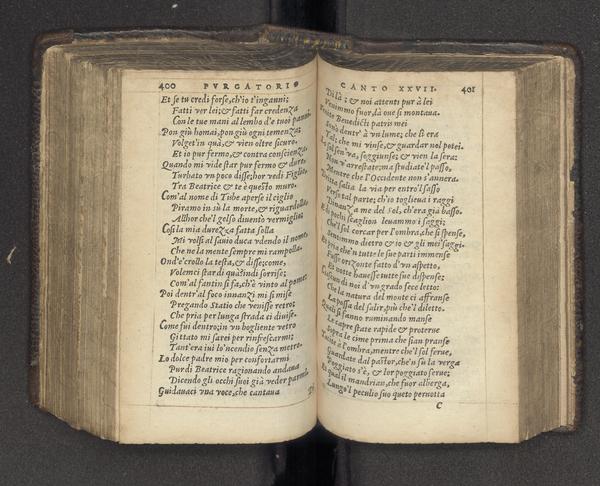 400 PVRGATORIO
Et se tu credi forse, ch'io t'inganni;
Fatti ver lei; & fatti far credenza
Con le tue mani al lembo d'e tuoi panni.
Pon giù homai, pon giù ogni temenza;
Volget'in quà, & vien oltre sicuro.
Et io pur fermo, & contra conscienza.
Quando mi vide star pur fermo & duro,
Turbato vn poco disse; hor vedi Figlio,
Tra Beatrice & te è questo muro.
Com'al nome di Tisbe aperse il ciglio
Piramo in sù la morte, & riguardolla;
Allhor che'l gelso diuentò vermiglio;
Così la mia durezza fatta solla
Mi volsi al sauio duca vdendo il nome,
Che ne la mente sempre mi rampolla.
Ond'e' crollò la testa, & disse; come,
Volemci star di quà? indi sorrise;
Com'al fantin si fa, ch'è vinto al pome.
Poi dentr'al foco innanzi mi si mise
Pregando Statio che venisse retro;
Che pria per lunga strada ci diuise.
Come fui dentro; in vn bogliente vetro
Gittato mi sarei per rinfrescarmi;
Tant'era iui lo'ncendio senza metro.
Lo dolce padre mio per confortarmi
Pur di Beatrice ragionando andaua
Dicendo gli occhi suoi già veder parmi.
Guidauaci vna voce, che cantaua
CANTO XXVII. 401
Di là; & noi attenti pur à lei
Venimmo fuor, là oue si montaua.
Venite Benedicti patris mei
Sonò dentr'à vn lume; che lì era
Tal; che mi vinse, & guardar nol potei.
Lo sol sen'va, soggiunse; & vien la sera:
Non v'arrestate; ma studiate'l passo,
Mentre che l'Occidente non s'annera.
Dritta salia la via per entro'l sasso
Verso tal parte; ch'io toglieua i raggi
Dinanzi à me del Sol, ch'era già basso.
E di pochi scaglion leuammo i saggi;
Che'l sol corcar per l'ombra, che si spense,
Sentimmo dietro & io & gli miei saggi.
Et pria che'n tutte le sue parti immense
Fusse orizonte fatto d'vn aspetto,
Et notte hauesse tutte sue dispense;
Ciascun di noi d'vn grado fece letto:
Che la natura del monte ci affranse
La possa del salir, più che'l diletto.
Quali si fanno ruminando manse
Le capre state rapide & proterue
Sopra le cime prima che sian pranse
Tacite à l'ombra, mentre che'l sol ferue,
Guardate dal pastor, che'n sù la verga
Poggiato s'è, & lor poggiato serue;
Et qual il mandrian, che fuor alberga,
Lungo'l peculio suo queto pernotta
C